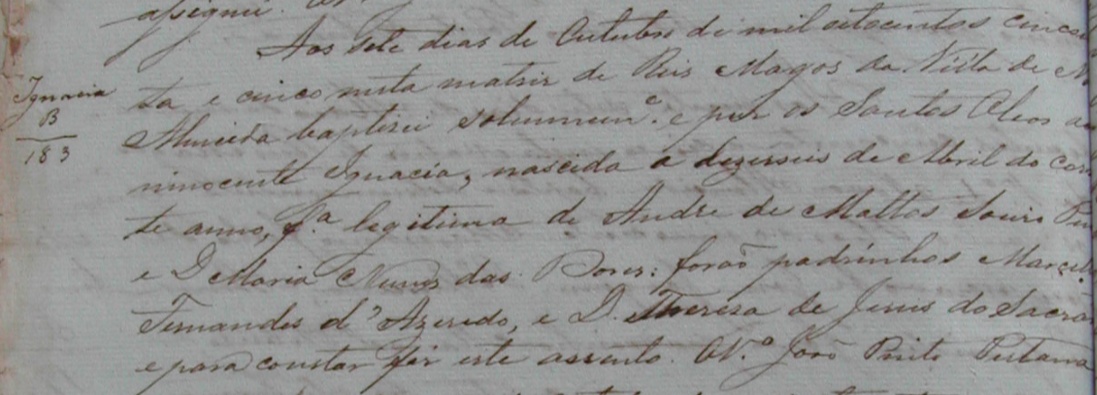 assignei. O V.
Aos sete dias de Outubro de mil oitocentos cincoen
Ignacia
ta e cinco nesta matris de Reis Magos da Villa de N
B
Almeida baptisei solumnem.e e pus os Santos Oleos a
183
innocente Ignacia, nascida a dezesseis de Abril do corr
te anno, f.a legitima de Andre de Mattos
e D Maria Nunes das Dores: forão padrinhos Marcel
Fernandes d'Azeredo, e D. Theresa de Jesus do Sacra
e para constar fiz este assento. O V.o João Pinto Pestana